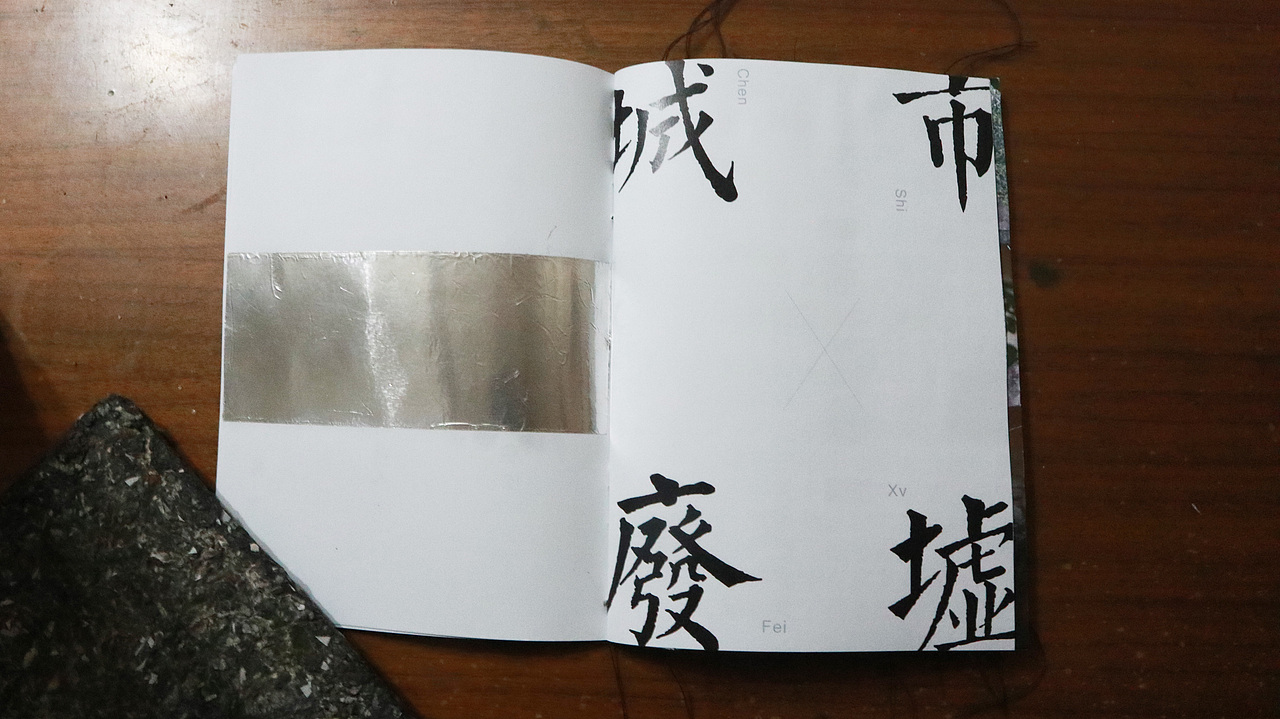 城 市
Chen
Shi
廢 墟
Xv
Fei